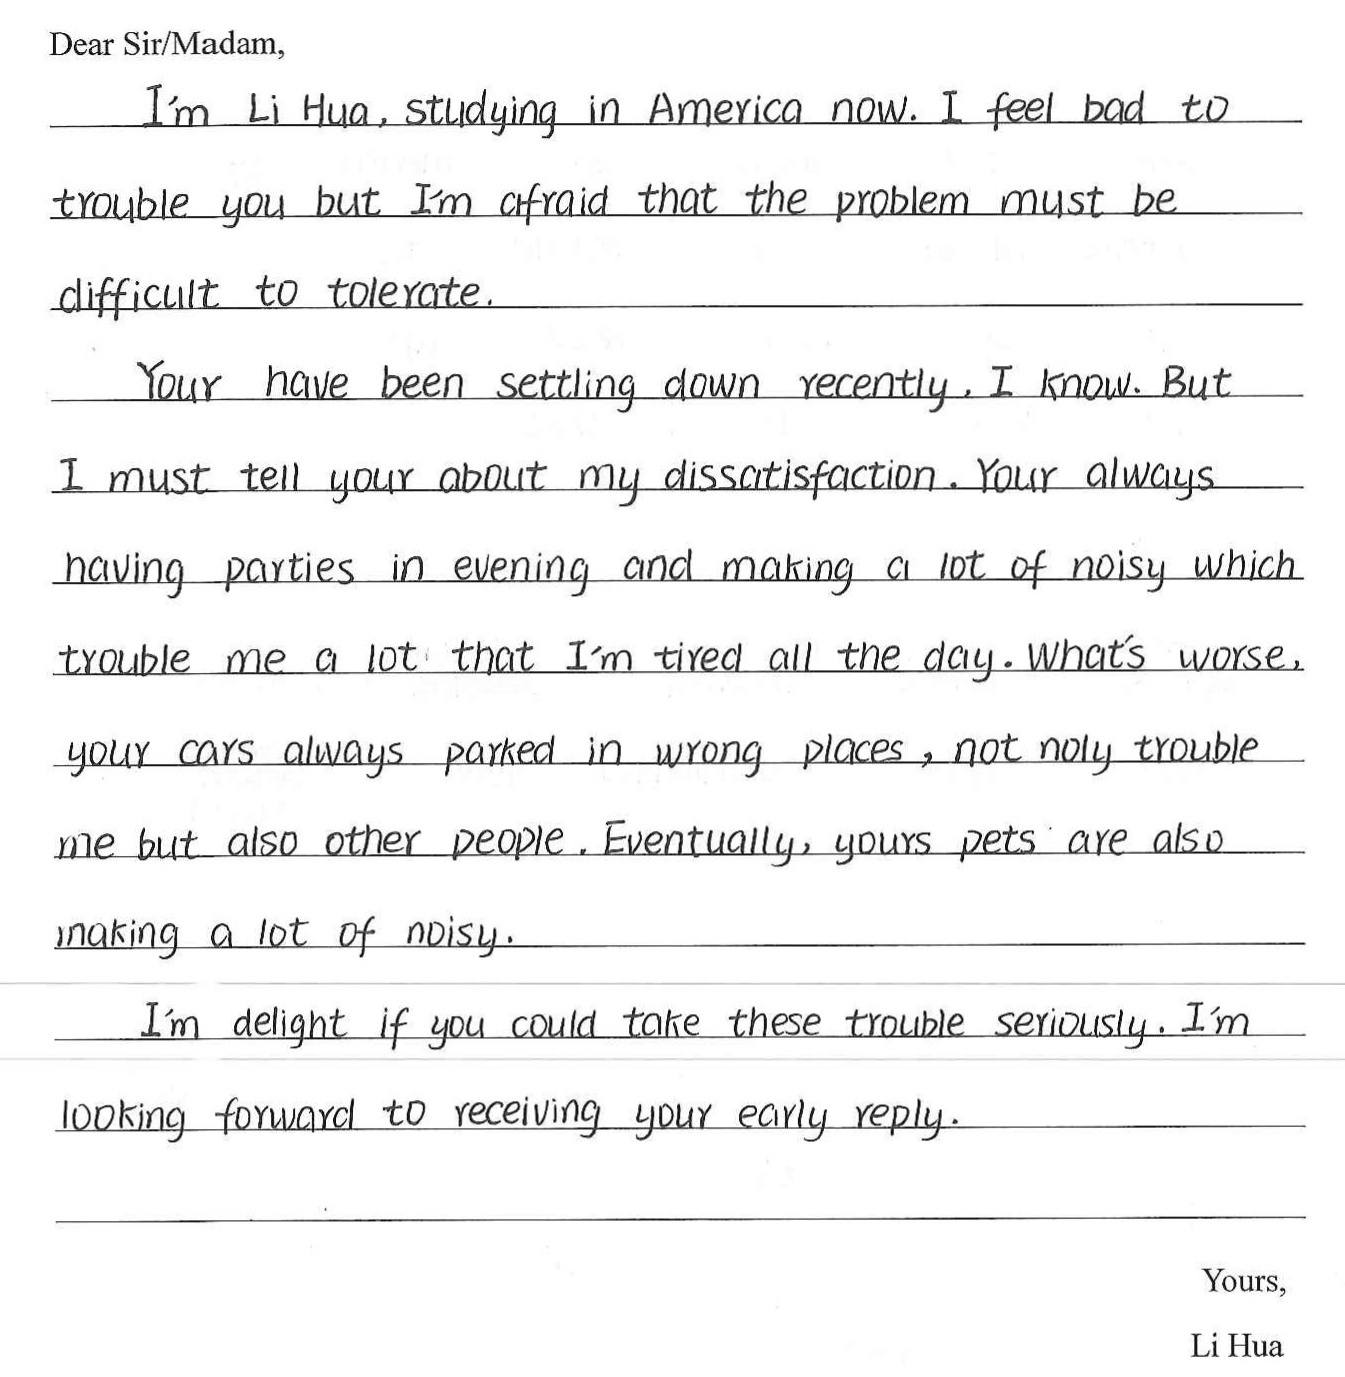 Dear Sir/Madam,
I'm Li Hua, studying in America now. I feel bad to
trouble you but I'm afraid that the problem must be
difficult to tolerate.
Your have been settling down recently, I know. But
I must tell your about my dissatisfaction. Your always
having parties in evening and making a lot of noisy which
trouble me a lot that I'm tired all the day. What's worse,
your cars always parked in wrong places, not noly trouble
me but also other people. Eventually, yours pets are also
making a lot of noisy.
I'm delight if you could take these trouble seriously. I'm
looking forward to receiving your early reply.
Yours,
Li Hua